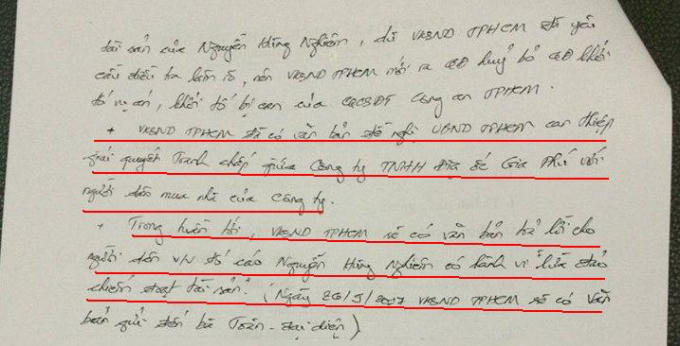 tài sản của Nguyễn Hùng Nghiêm, dù VKSND TPHCM đã yêu
cầu điều tra làm rõ, nên VKSND TPHCM mới ra QĐ huỷ bỏ QĐ khởi
tố vụ án, khởi tố bị can của CQCSĐT Công an TPHCM.
+ VKSND TPHCM đã có văn bản đề nghị UBND TPHCM can thiệp
giải quyết tranh chấp giữa Công ty TNHH Địa ốc Gia Phú với
người dân mua nhà của Công ty.
+ Trong tuần tới, VKSND TPHCM sẽ có văn bản trả lời cho
người dân v/v tố cáo Nguyễn Hùng Nghiêm có hành vi "lừa đảo
chiếm đoạt tài sản". (Ngày 26/5/2017 VKSND TPHCM sẽ có văn
bản gửi đến bà Toàn - đại diện)